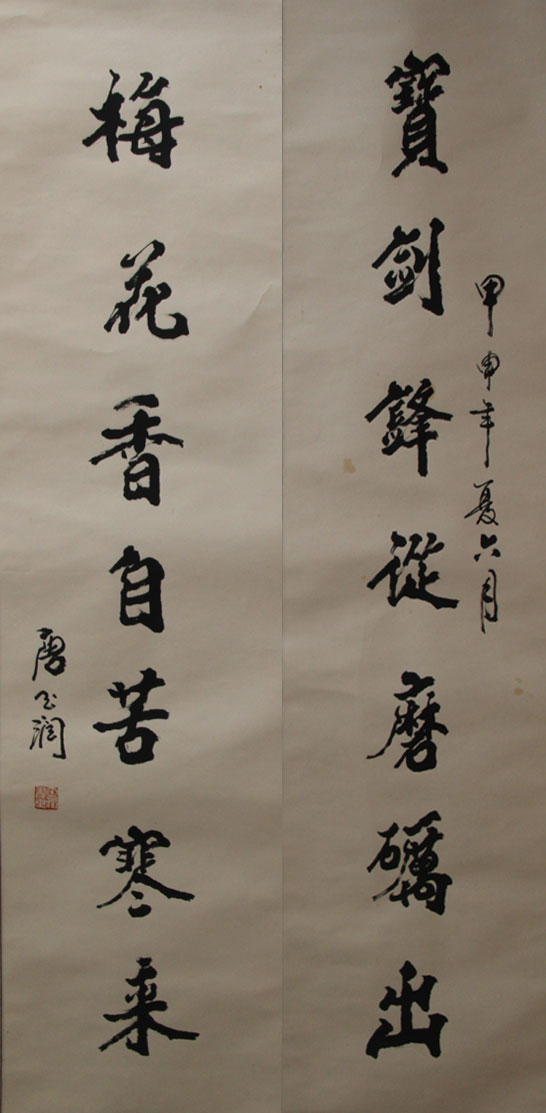 甲申年夏六月
寶劍鋒從磨礪出
梅花香自苦寒来
唐玉润